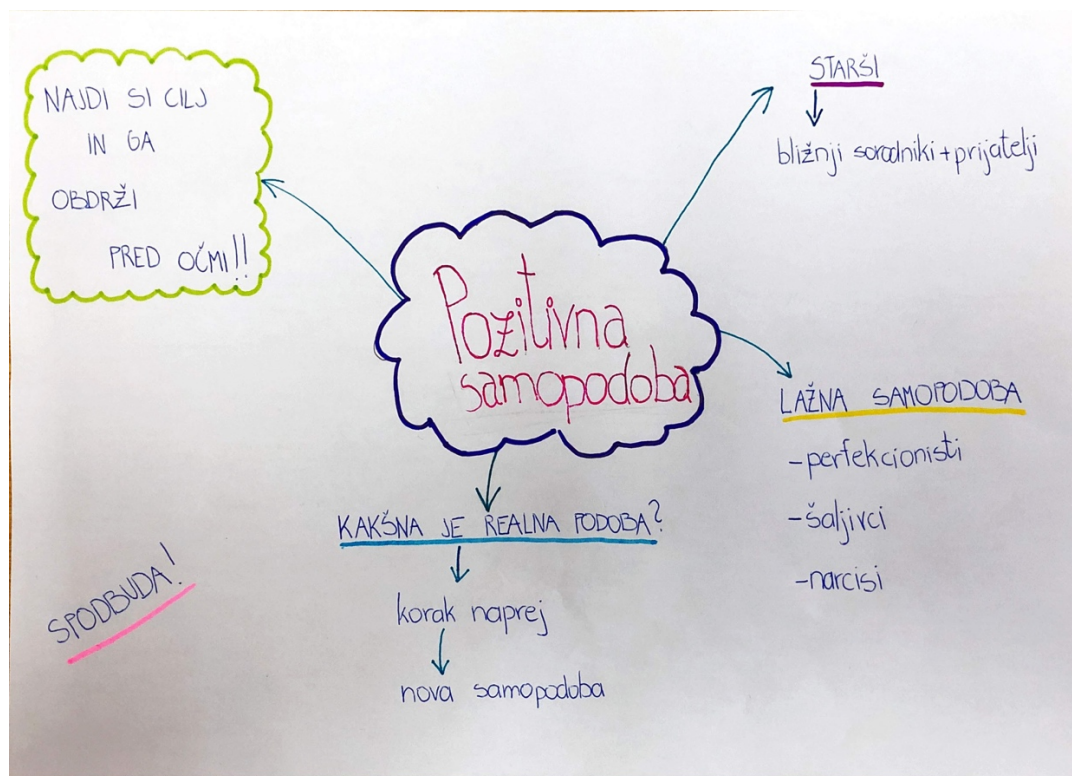 NAJDI SI CILJ
IN GA
OBDRŽI
PRED OČMI!!
STARŠI
bližnji sorodniki+prijatelji
Pozitivna
samopodoba
LAŽNA SAMOPODOBA
-perfekcionisti
-šaljivci
-narcisi
KAKŠNA JE REALNA PODOBA?
korak naprej
nova samopodoba
SPODBUDA!